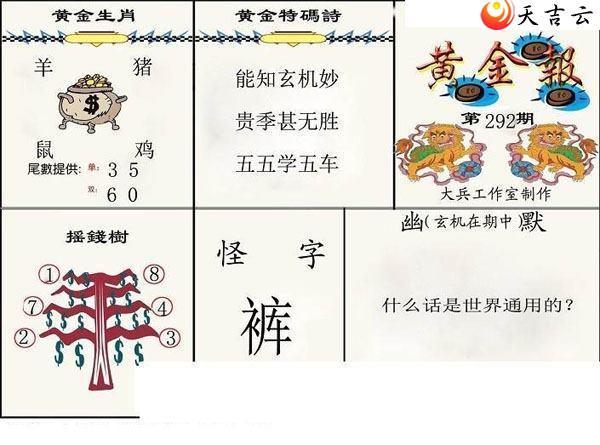 黄金生肖
羊 猪
$
鼠 鸡
尾數提供: 单: 3 5
双: 6 0
黄金特碼詩
能知玄机妙
贵季甚无胜
五五学五车
天吉云
黄金報
第292期
大兵工作室制作
摇錢樹
① ⑧
⑦ ④
② ③
$ $ $ $ $ $ $ $
怪 字
裤
幽(玄机在期中)默
什么话是世界通用的?